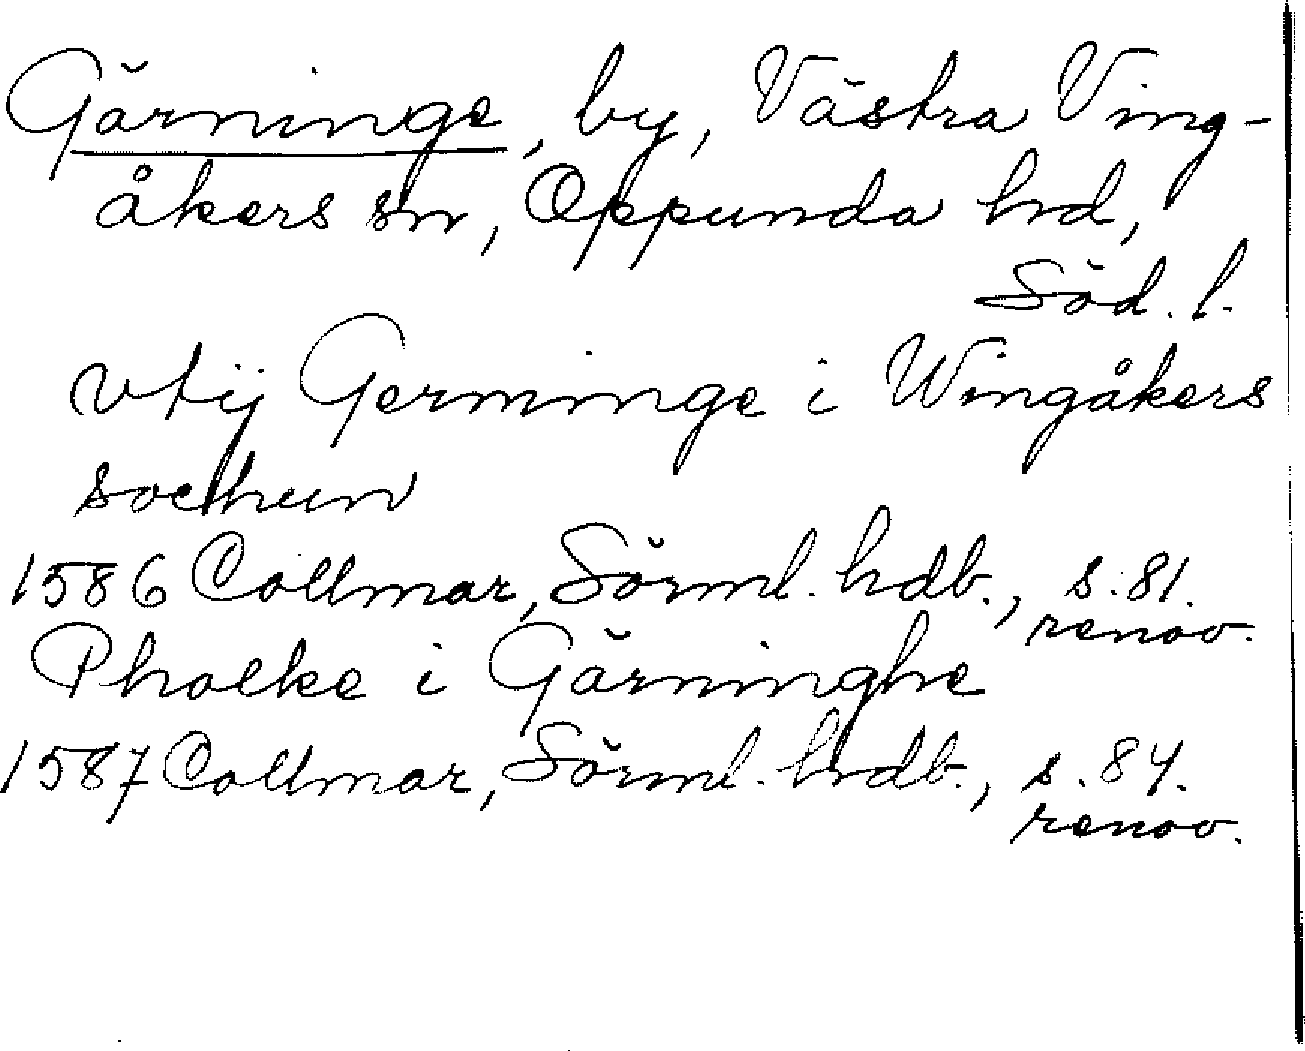 Gärninge, by, Västra Ving-
åkers sn, Oppunda hd,
Söd. l.
vtij Gerninge i Wingåkers
sochun
1586 Collmar, Sörml. hdb., s. 81.
renov.
Pholke i Gärninghe
1587 Collmar, Sörml. hdb., s. 84.
renov.